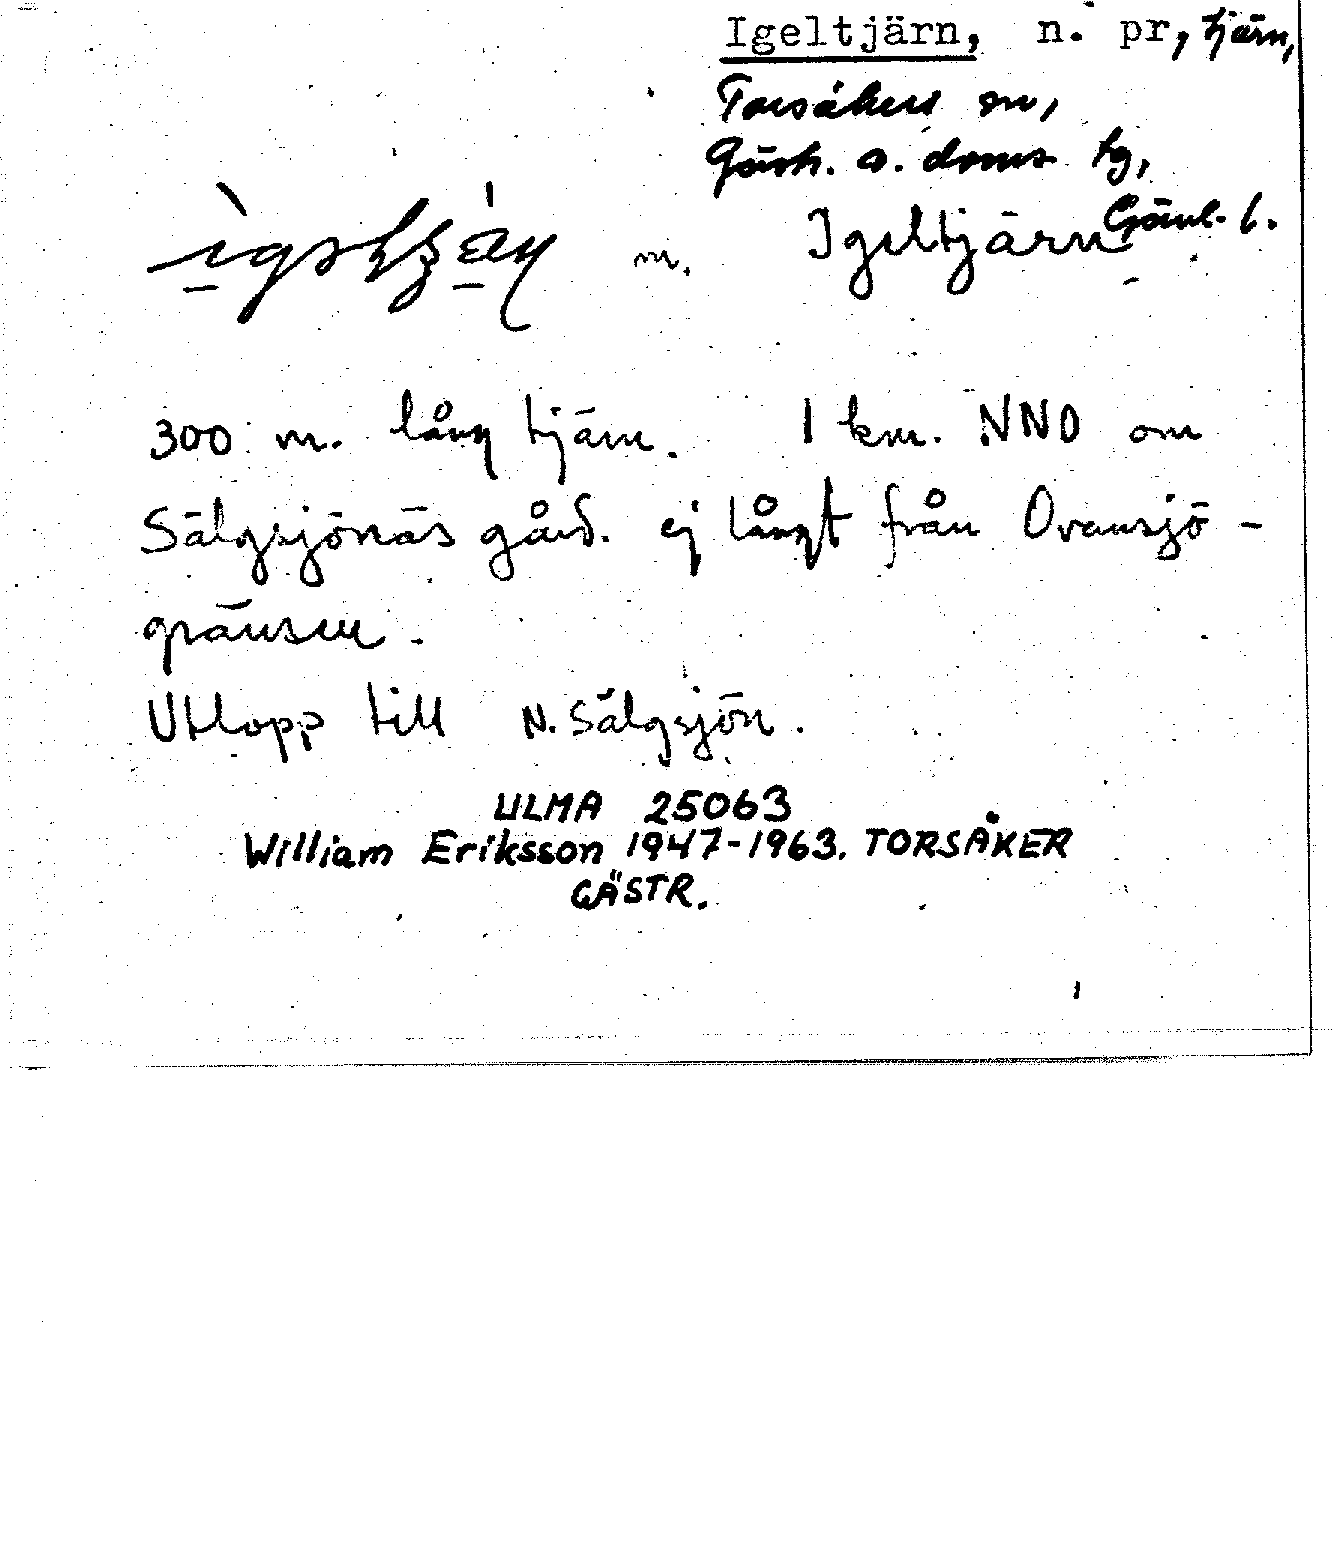 Igeltjärn, n. pr, tjärn,
Torsåkers sn,
Gästr. ö. doms tg,
Gävl. l.
m. Igeltjärn
300 m. lång tjärn. 1 km. NNO om
Sälgsjönäs gård. ej långt från Ovansjö -
gränsen.
Utlopp till N. Sälgsjön.
ULMA 25063
William Eriksson 1947-1963. TORSÅKER
GÄSTR.